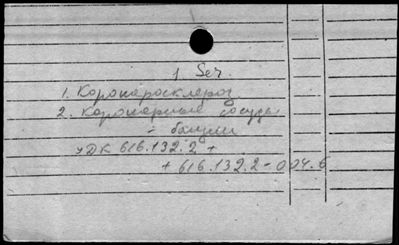 1 Ser.
1. Коронаросклероз
2. Коронарные сосуды
УДК 616.132.2 +
+ 616.132.2-004.6